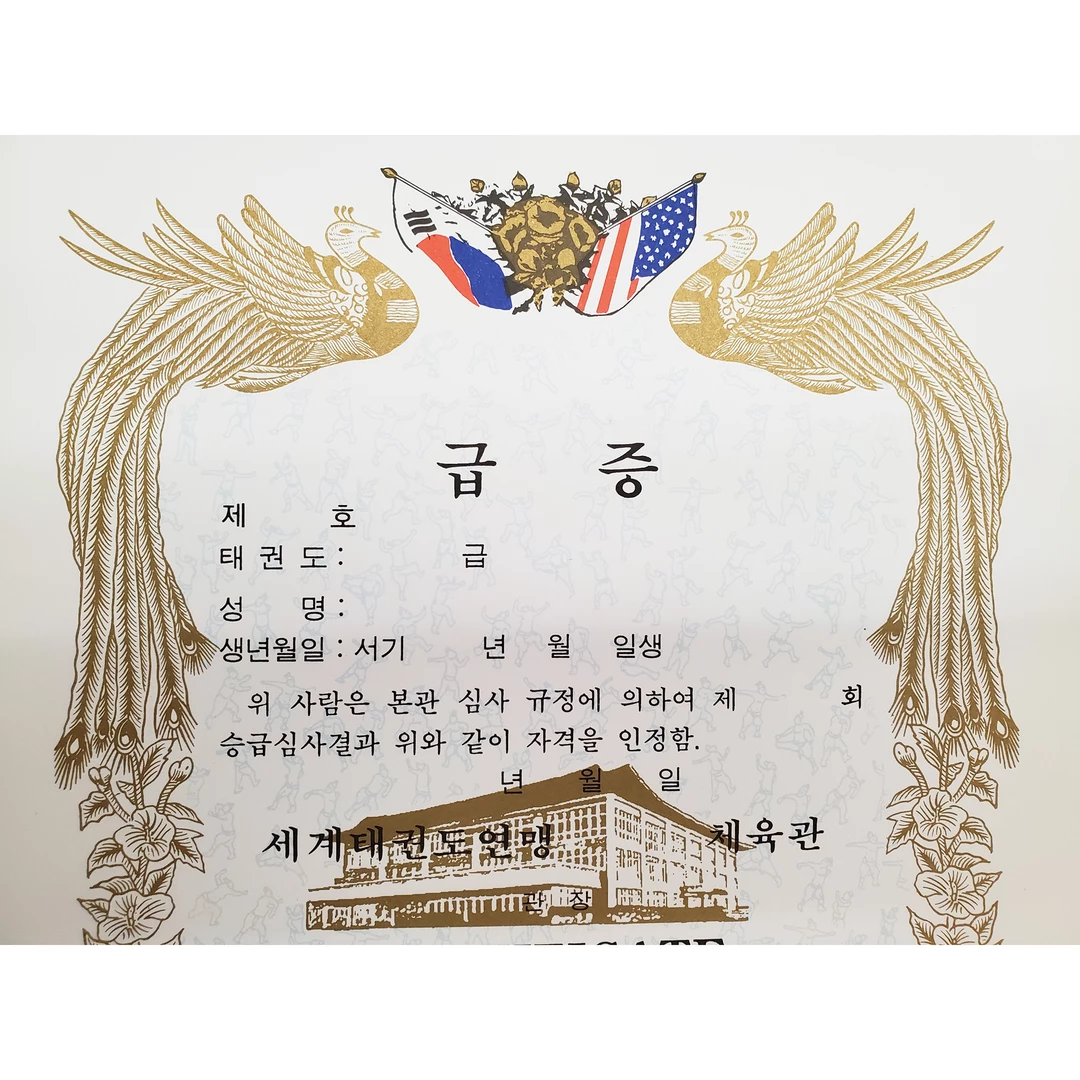 급 증
제 호
태 권 도 : 급
성 명 :
생년월일 : 서기 년 월 일생
위 사람은 본관 심사 규정에 의하여 제 회
승급심사결과 위와 같이 자격을 인정함.
년 월 일
세계태권도연맹 체육관
관 장